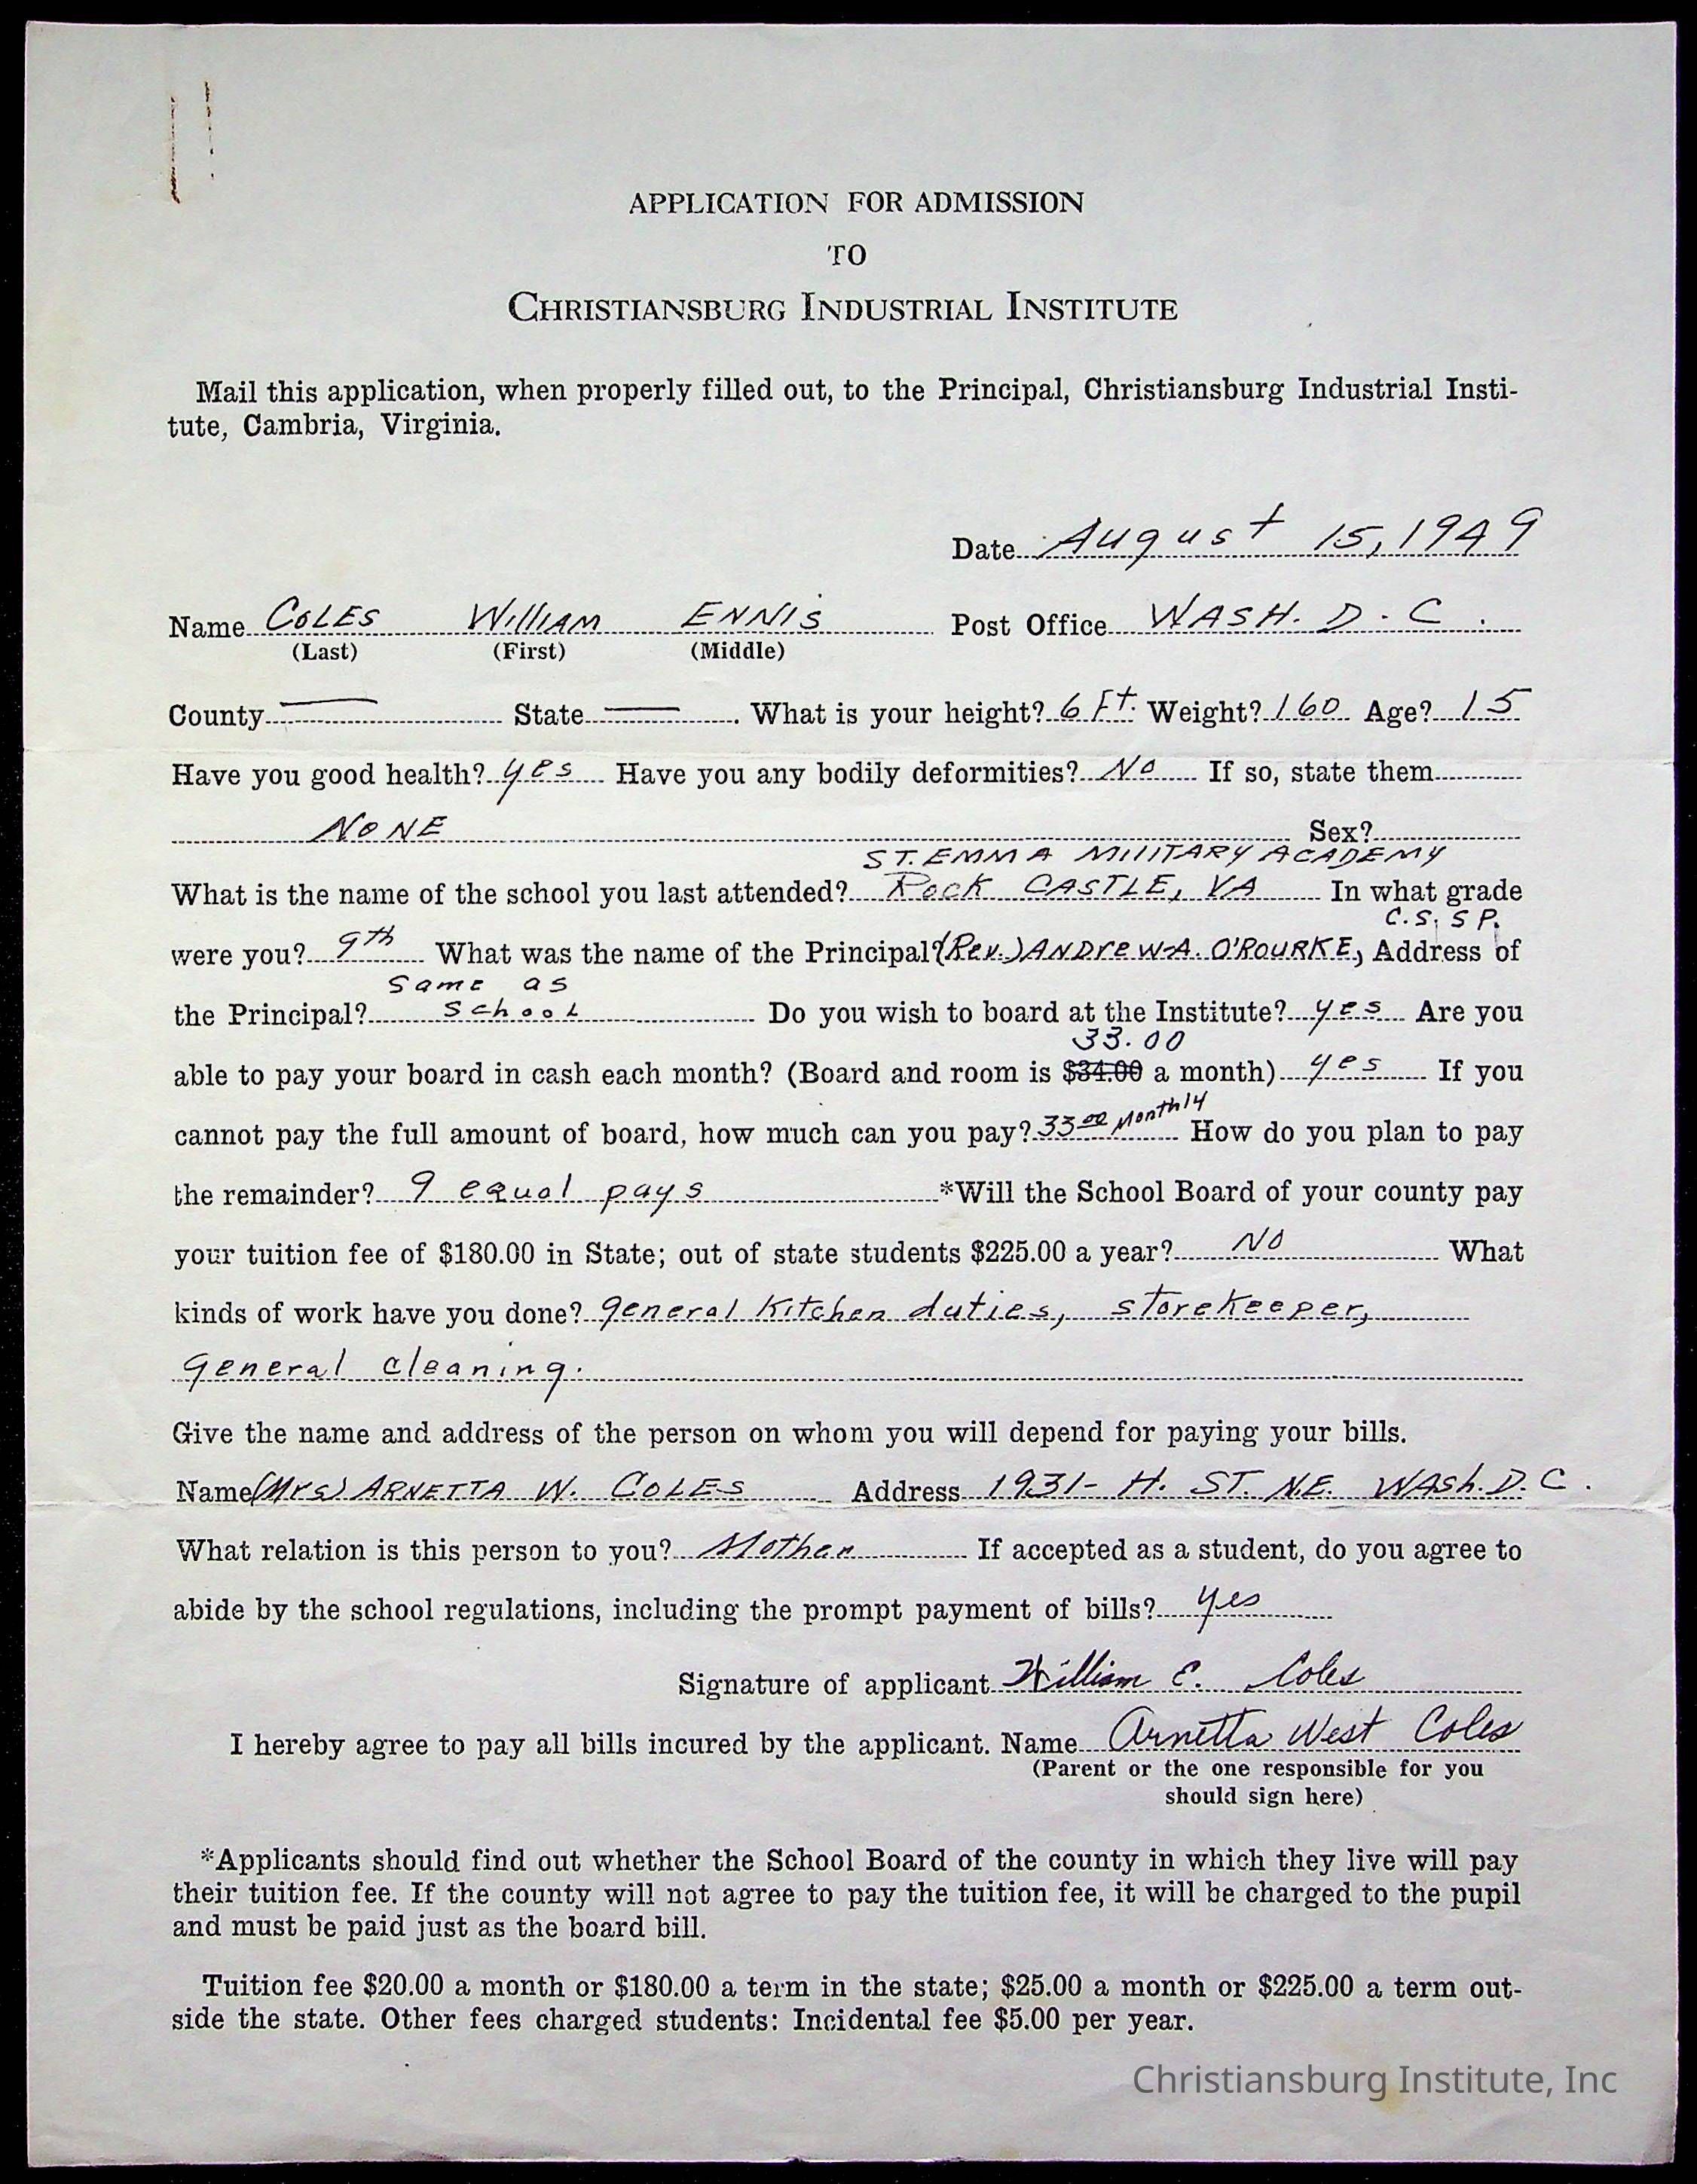 APPLICATION FOR ADMISSION
TO
CHRISTIANSBURG INDUSTRIAL INSTITUTE
Mail this application, when properly filled out, to the Principal, Christiansburg Industrial Insti-
tute, Cambria, Virginia.
Date August 15, 1949
Name COLES William ENNIS Post Office WASH. D.C.
(Last) (First) (Middle)
County — State —. What is your height? 6 Ft. Weight? 160 Age? 15
Have you good health? yes Have you any bodily deformities? No If so, state them
NONE Sex?
ST. EMMA MILITARY ACADEMY
What is the name of the school you last attended? Rock CASTLE, VA In what grade
C.S.SP.
were you? 9th What was the name of the Principal? (Rev.) ANDREW A. O'ROURKE, Address of
Same as
the Principal? School Do you wish to board at the Institute? yes Are you
33.00
able to pay your board in cash each month? (Board and room is $34.00 a month) yes If you
cannot pay the full amount of board, how much can you pay? 33.00 Monthly How do you plan to pay
the remainder? 9 equal pays *Will the School Board of your county pay
your tuition fee of $180.00 in State; out of state students $225.00 a year? NO What
kinds of work have you done? general Kitchen duties, storekeeper,
general cleaning.
Give the name and address of the person on whom you will depend for paying your bills.
Name (Mrs) ARNETTA W. COLES Address 1931- H. ST. N.E. WASH. D.C.
What relation is this person to you? Mother If accepted as a student, do you agree to
abide by the school regulations, including the prompt payment of bills? yes
Signature of applicant William E. Coles
I hereby agree to pay all bills incured by the applicant. Name Arnetta West Coles
(Parent or the one responsible for you
should sign here)
*Applicants should find out whether the School Board of the county in which they live will pay
their tuition fee. If the county will not agree to pay the tuition fee, it will be charged to the pupil
and must be paid just as the board bill.
Tuition fee $20.00 a month or $180.00 a term in the state; $25.00 a month or $225.00 a term out-
side the state. Other fees charged students: Incidental fee $5.00 per year.
Christiansburg Institute, Inc